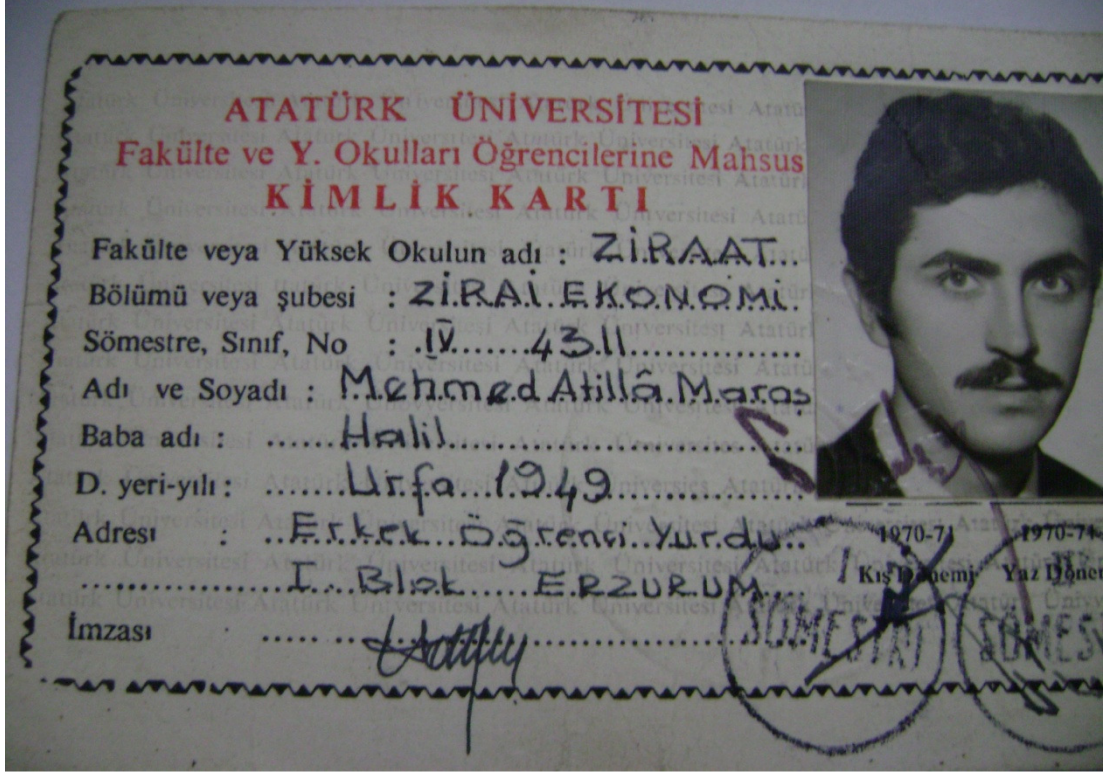 ATATÜRK ÜNİVERSİTESİ
Fakülte ve Y. Okulları Öğrencilerine Mahsus
KİMLİK KARTI
Fakülte veya Yüksek Okulun adı : ZİRAAT...
Bölümü veya şubesi : ZİRAİ EKONOMİ
Sömestre, Sınıf, No : .IV.......4311
Adı ve Soyadı : Mehmed Atillâ Maraş
Baba adı : Halil
D. yeri-yılı : Urfa 1949
Adresi : Erkek Öğrenci Yurdu
I. Blok ERZURUM
İmzası :
1970-71 1970-71
Kış Dönemi Yaz Dönem
SÖMESTRİ SÖMES